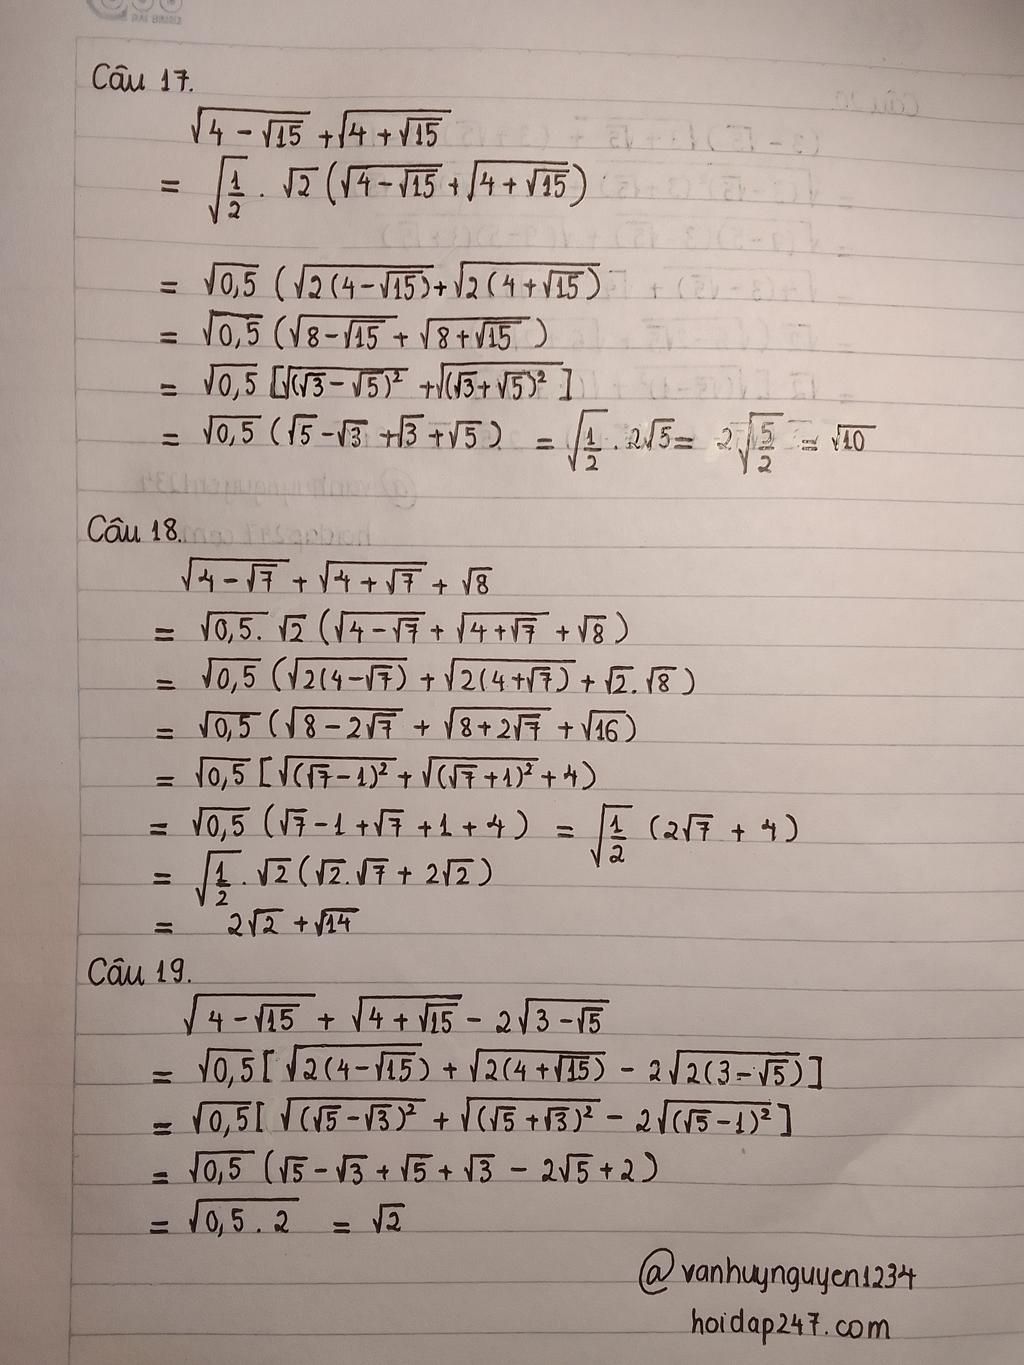 Câu 17.
√(4 - √15) + √(4 + √15)
= √(1/2) . √2 (√(4 - √15) + √(4 + √15))
= √0,5 (√(2(4 - √15)) + √(2(4 + √15))
= √0,5 (√(8 - √15) + √(8 + √15))
= √0,5 [√((√3 - √5)²) + √((√3 + √5)²)]
= √0,5 (√5 - √3 + √3 + √5) = √(1/2) . 2√5 = 2√(5/2) = √10
Câu 18.
√(4 - √7) + √(4 + √7) + √8
= √0,5. √2 (√(4 - √7) + √(4 + √7) + √8)
= √0,5 (√(2(4 - √7)) + √(2(4 + √7)) + √2.√8)
= √0,5 (√(8 - 2√7) + √(8 + 2√7) + √16)
= √0,5 [√((√7 - 1)²) + √((√7 + 1)²) + 4)
= √0,5 (√7 - 1 + √7 + 1 + 4) = √(1/2) (2√7 + 4)
= √(1/2) . √2 (√2.√7 + 2√2)
= 2√2 + √14
Câu 19.
√(4 - √15) + √(4 + √15) - 2√(3 - √5)
= √0,5 [√(2(4 - √15)) + √(2(4 + √15)) - 2√(2(3 - √5))]
= √0,5 [√((√5 - √3)²) + √((√5 + √3)²) - 2√((√5 - 1)²)]
= √0,5 (√5 - √3 + √5 + √3 - 2√5 + 2)
= √(0,5 . 2) = √2
@vanhuynguyen1234
hoidap247.com